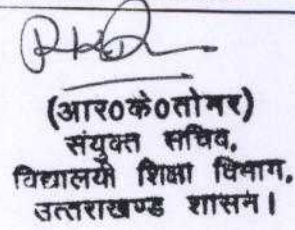 (आर0के0तोमर)
संयुक्त सचिव,
विद्यालयी शिक्षा विभाग,
उत्तराखण्ड शासन।